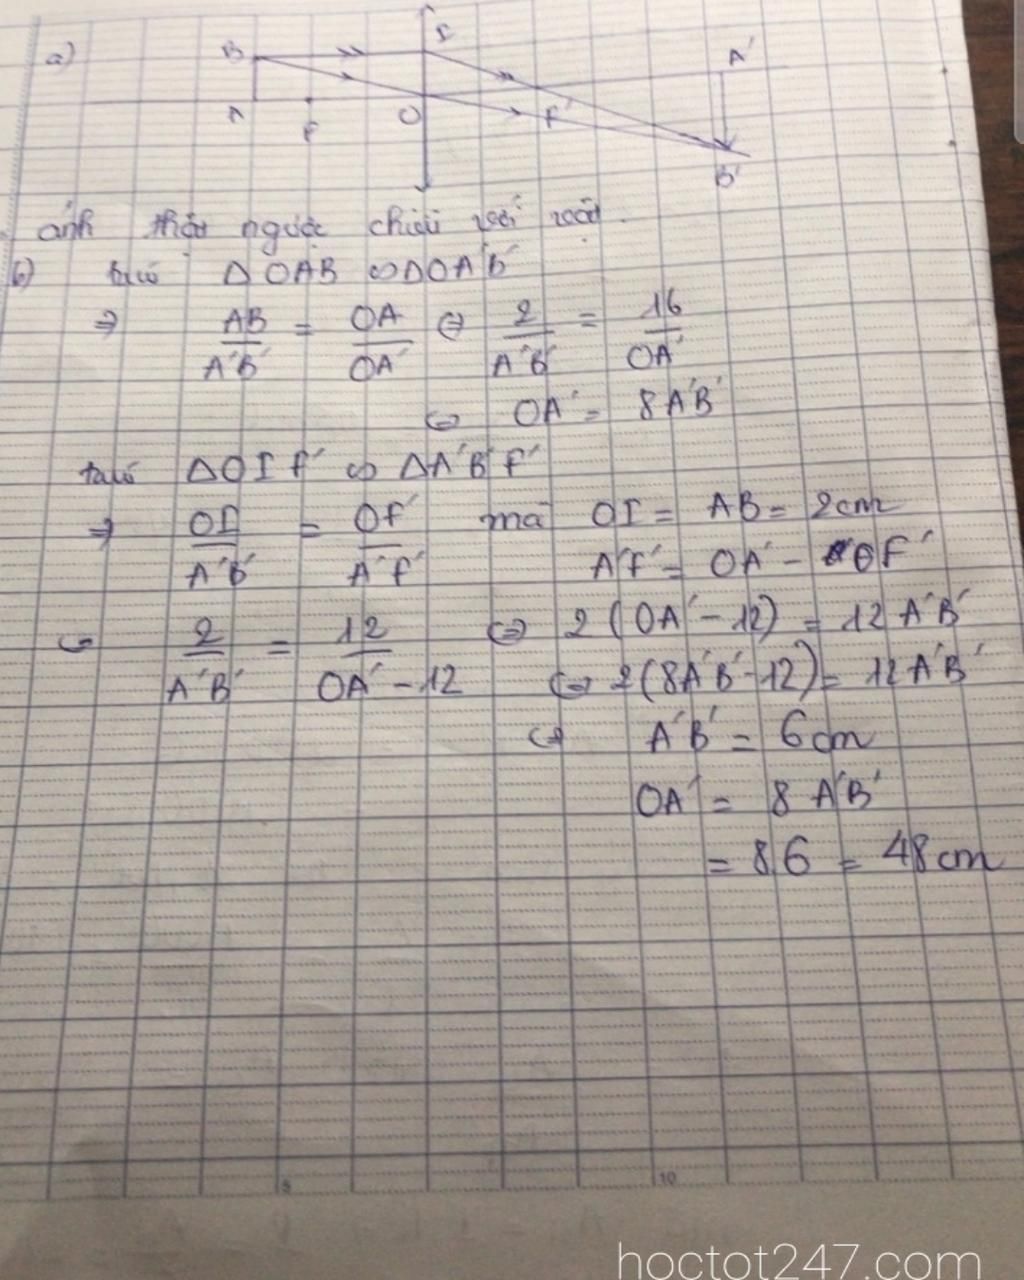 a)
B
I
A'
A
F
O
F'
B'
ảnh thật ngược chiều với vật.
b) ta có Δ OAB ∽ Δ OA'B'
⇒ AB/A'B' = OA/OA' ⇔ 2/A'B' = 16/OA'
⇔ OA' = 8 A'B'
ta có Δ OIF' ∽ Δ A'B'F'
⇒ OI/A'B' = OF'/A'F' mà OI = AB = 2cm
A'F' = OA' - OF'
⇔ 2/A'B' = 12/OA' - 12 ⇔ 2(OA' - 12) = 12 A'B'
⇔ 2(8A'B' - 12) = 12 A'B'
⇔ A'B' = 6cm
OA' = 8 A'B'
= 8.6 = 48cm
9
10
hoctot247.com